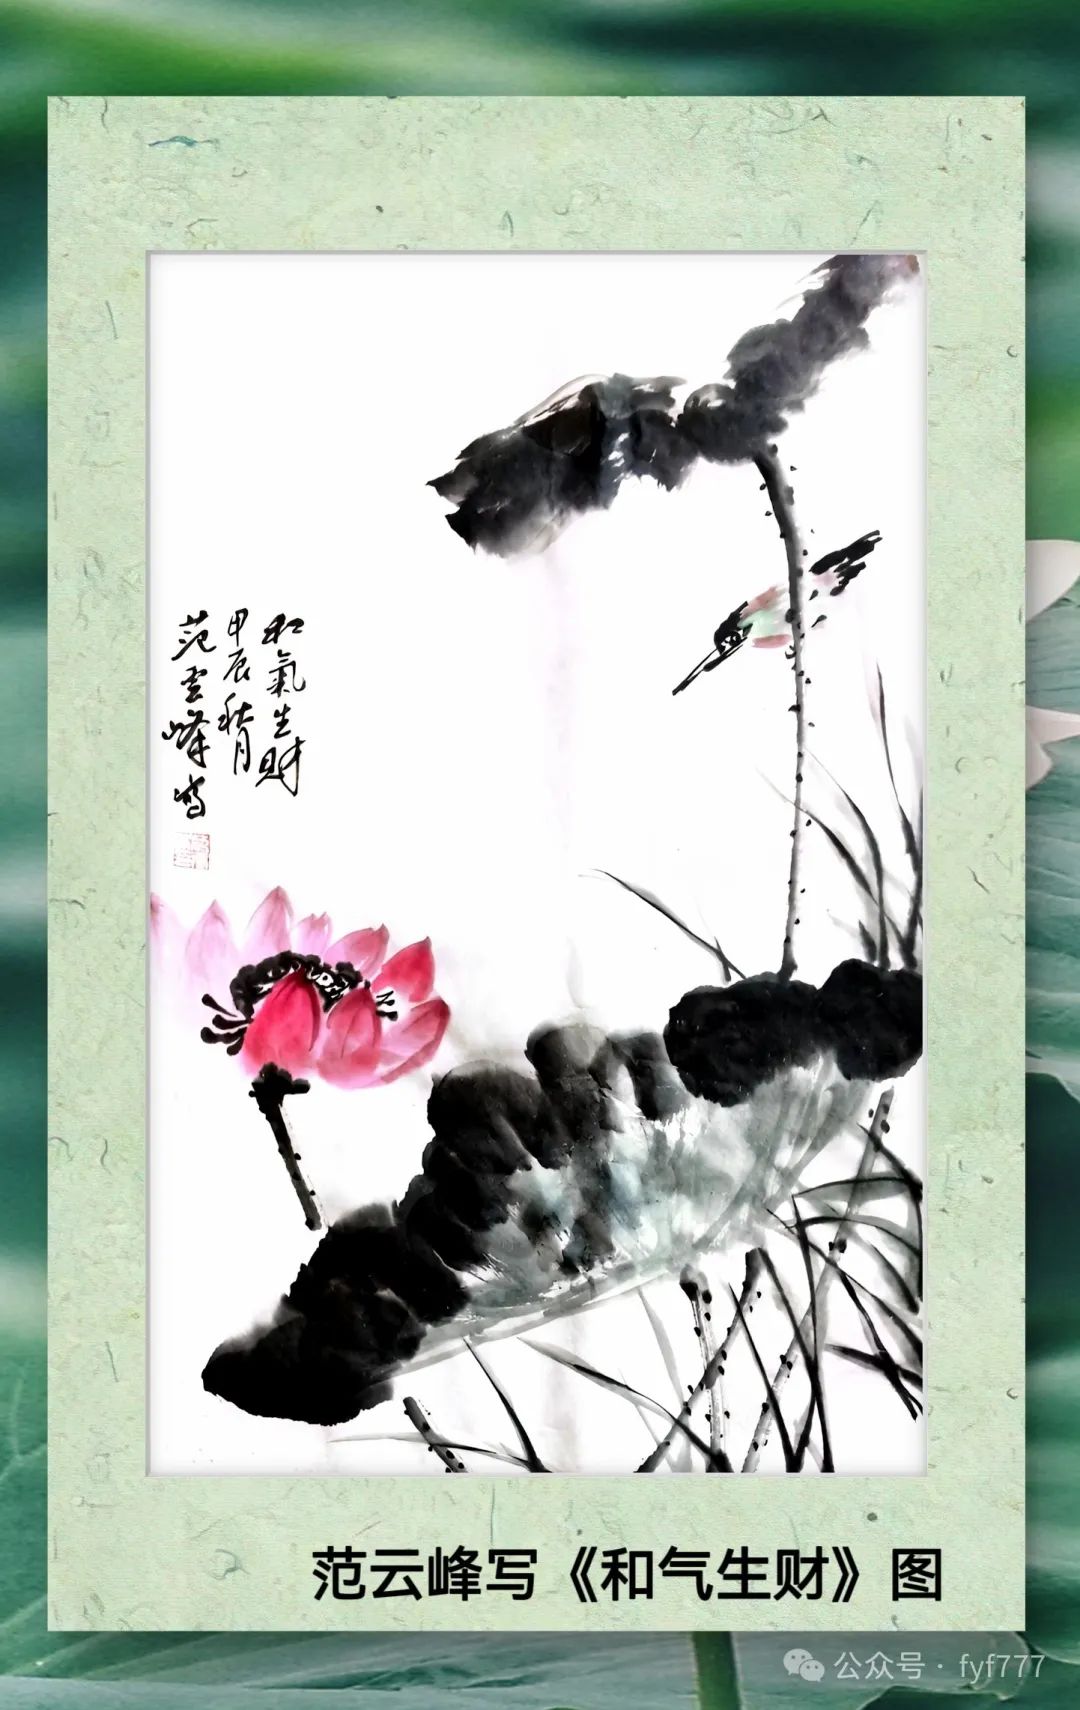 和氣生财
甲辰秋月
范云峰写
范云峰写《和气生财》图
公众号 · fyf777